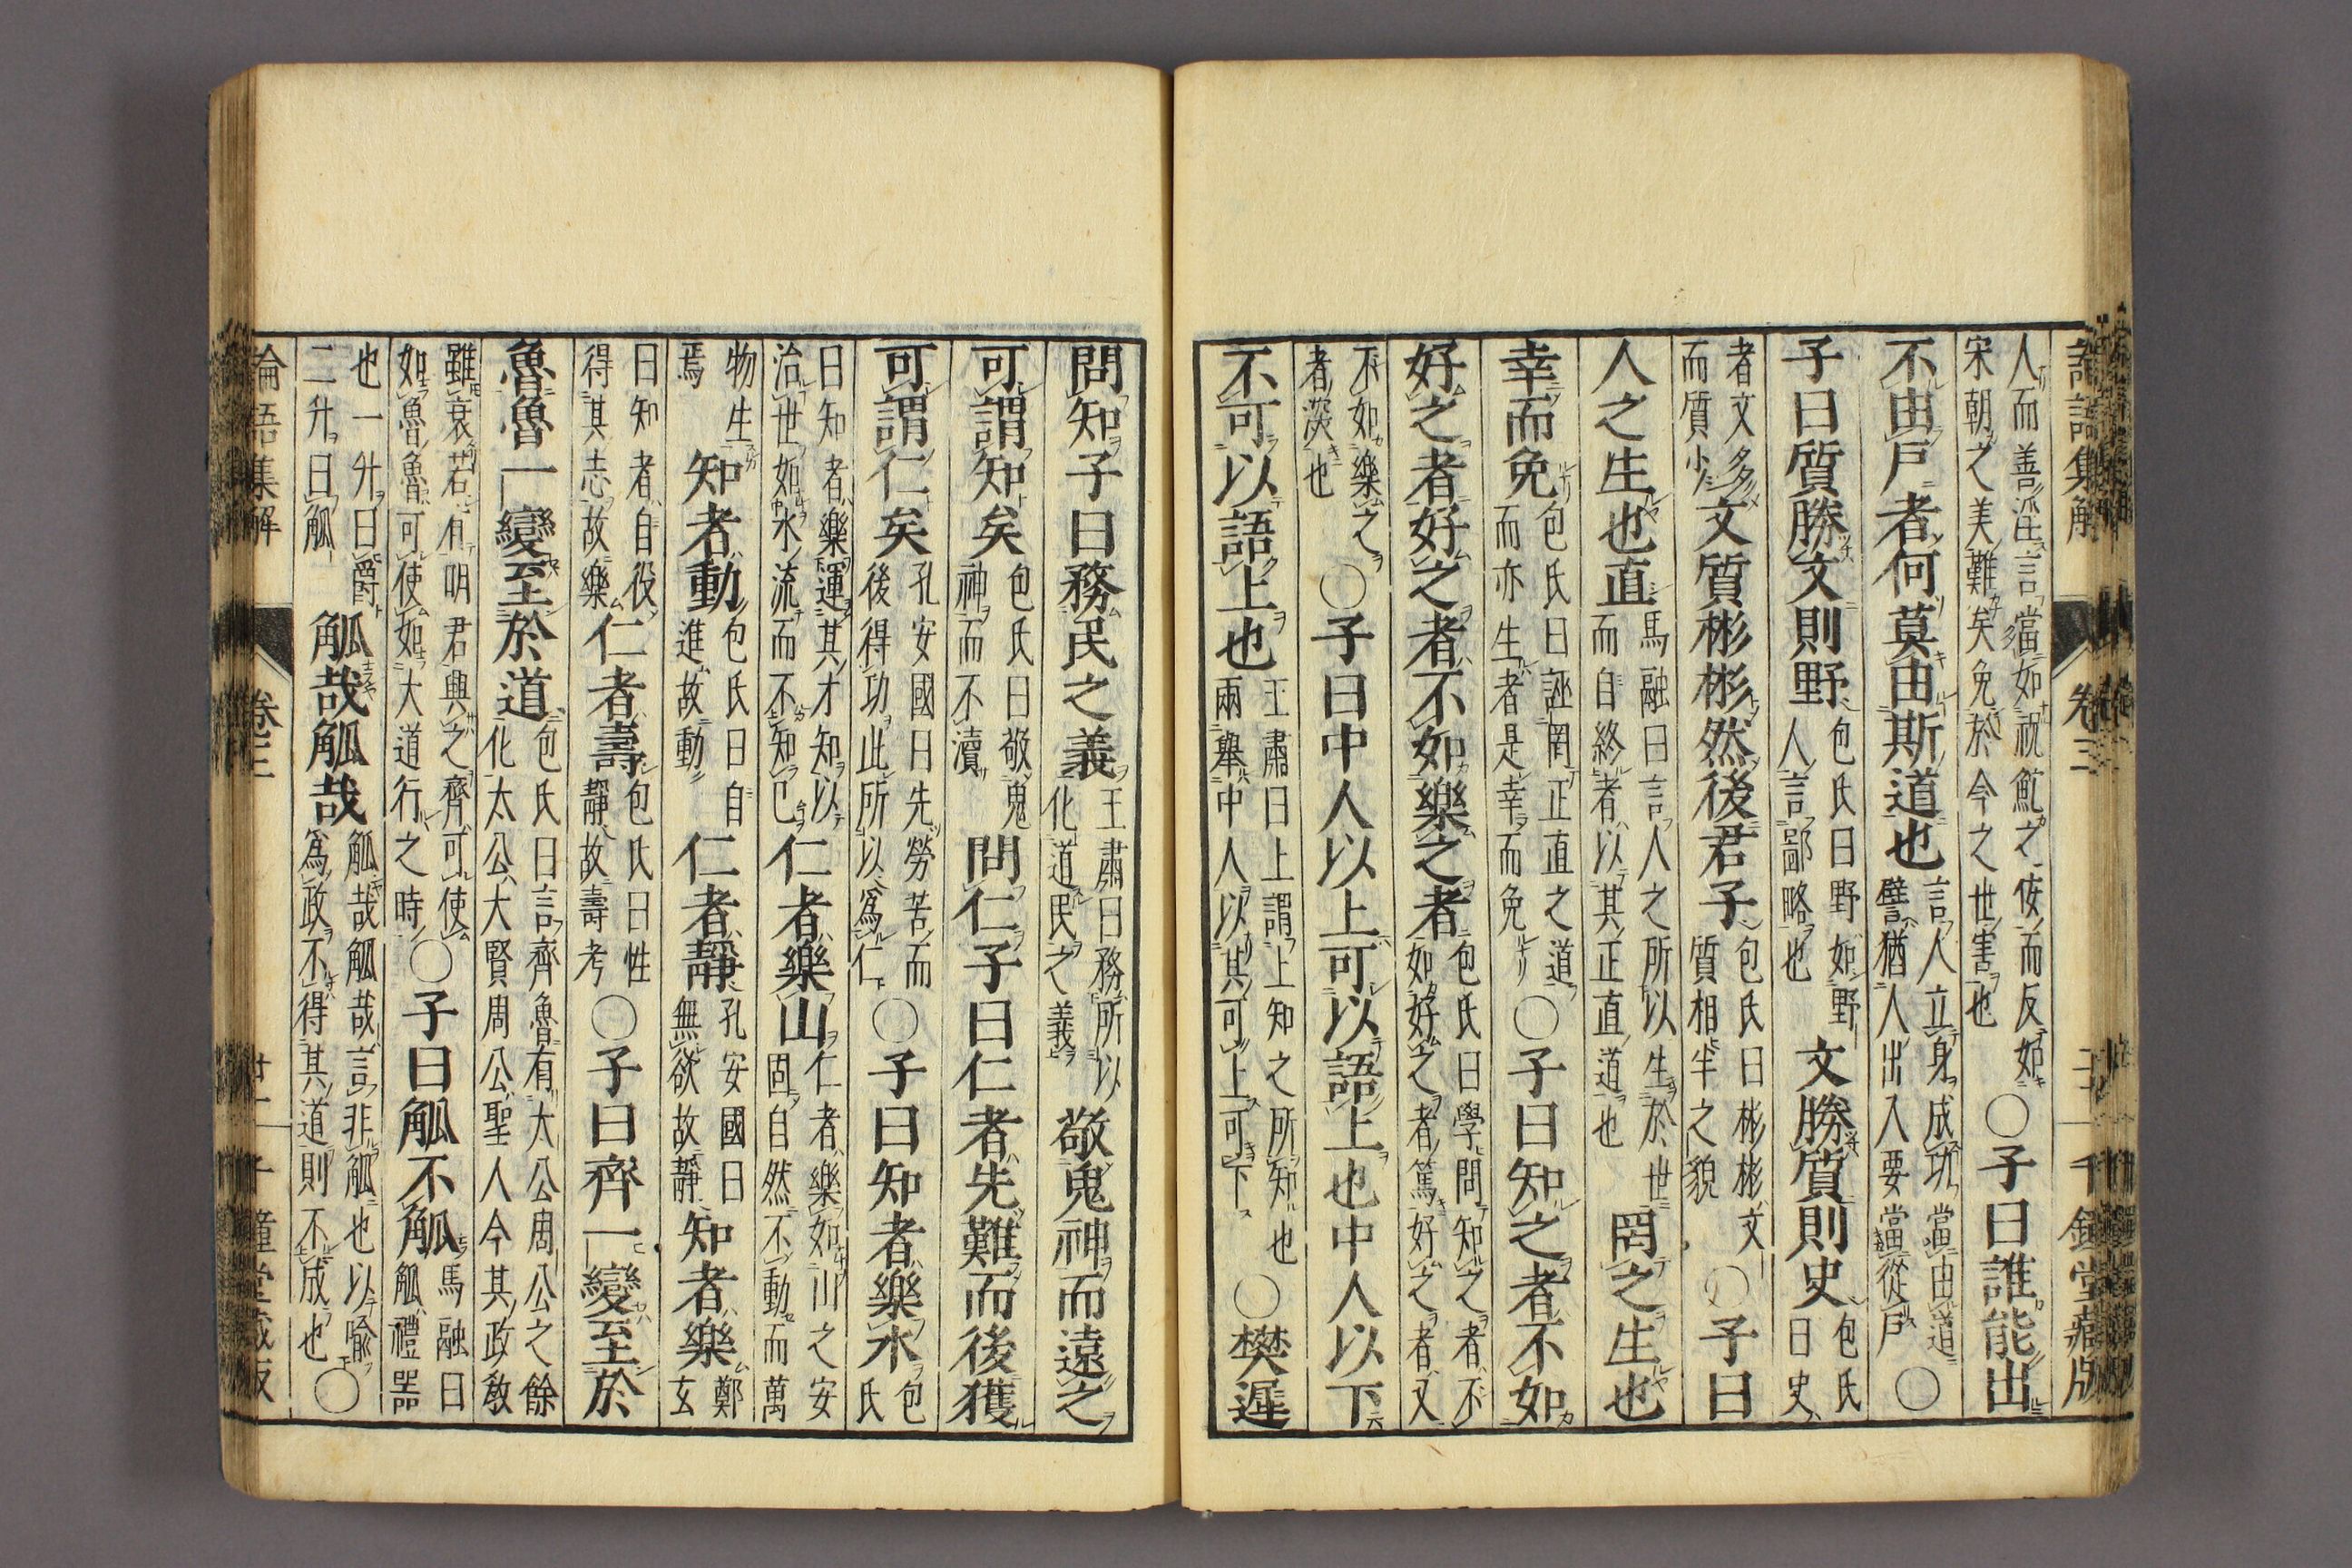 論語集解 卷三 千鍾堂藏版
人而善淫言當如祝鮀之侫而反如宋朝之美難矣免於今之世害也○子曰誰能出
不由戶者何莫由斯道也言人立身成功當由道譬猶人出入要當從戶○
子曰質勝文則野包氏曰野如野人言鄙略也文勝質則史包氏曰史
者文多而質少文質彬彬然後君子包氏曰彬彬文質相半之貌○子曰
人之生也直馬融曰言人之所以生於世而自終者以其正直道也罔之生也
幸而免包氏曰誣罔正直之道而亦生者是幸而免○子曰知之者不如
好之者好之者不如樂之者包氏曰學問知之者不如好之者篤好之者又
不如樂之者深也○子曰中人以上可以語上也中人以下
不可以語上也王肅曰上謂上知之所知也兩舉中人以其可上可下○樊遲
問知子曰務民之義王肅曰務所以化道民之義敬鬼神而遠之
可謂知矣包氏曰敬鬼神而不瀆問仁子曰仁者先難而後獲
可謂仁矣孔安國曰先勞苦而後得功此所以爲仁○子曰知者樂水包氏
曰知者樂運其才知以治世如水流而不知已仁者樂山仁者樂如山之安固自然不動而萬
物生焉知者動包氏曰自進故動仁者靜孔安國曰無欲故靜知者樂鄭玄
曰知者自役得其志故樂仁者壽包氏曰性靜故壽考○子曰齊一變至於
魯魯一變至於道包氏曰言齊魯有太公周公之餘化太公大賢周公聖人今其政教
雖衰若有明君興之齊可使如魯魯可使如大道行之時○子曰觚不觚馬融曰觚禮器
也一升曰爵二升曰觚觚哉觚哉觚哉觚哉言非觚也以喻爲政不得其道則不成也○
論語集解 卷三 千鍾堂藏版